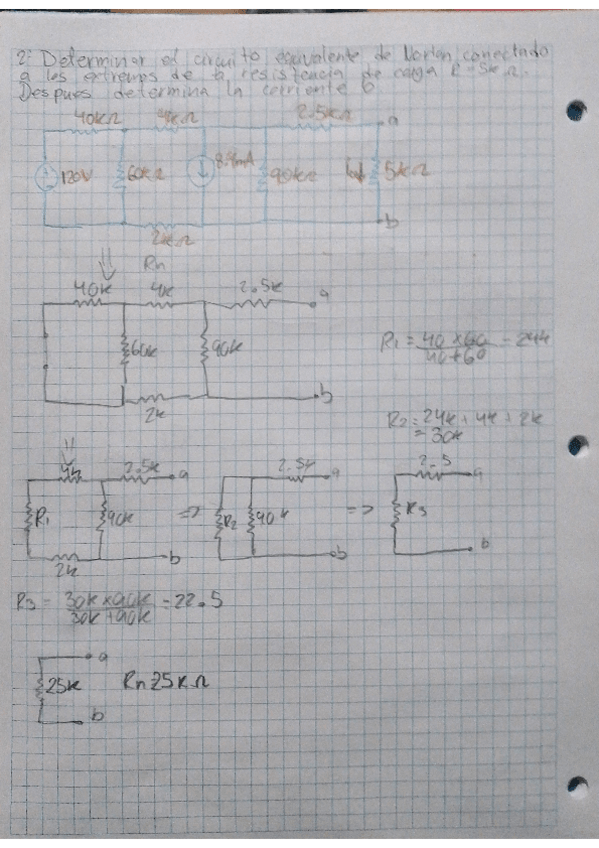 2. Determinar el circuito equivalente de Norton conectado
a los extremos de la resistencia de carga R = 5k Ω.
Despues determina la corriente
40kΩ 4kΩ 2.5kΩ a
120V 60kΩ 90kΩ 5kΩ
2kΩ b
Rn
40k 4k 2.5k a
60k 90k
2k b
R1 = 40 x 60 / 40 + 60 = 24k
R2 = 24k + 4k + 2k
= 30k
4k 2.5k a 2.5k a 2.5 a
R1 90k => R2 90k => R3
2k b b b
R3 = 30k x 90k / 30k + 90k = 22.5
a
25k Rn 25k Ω
b